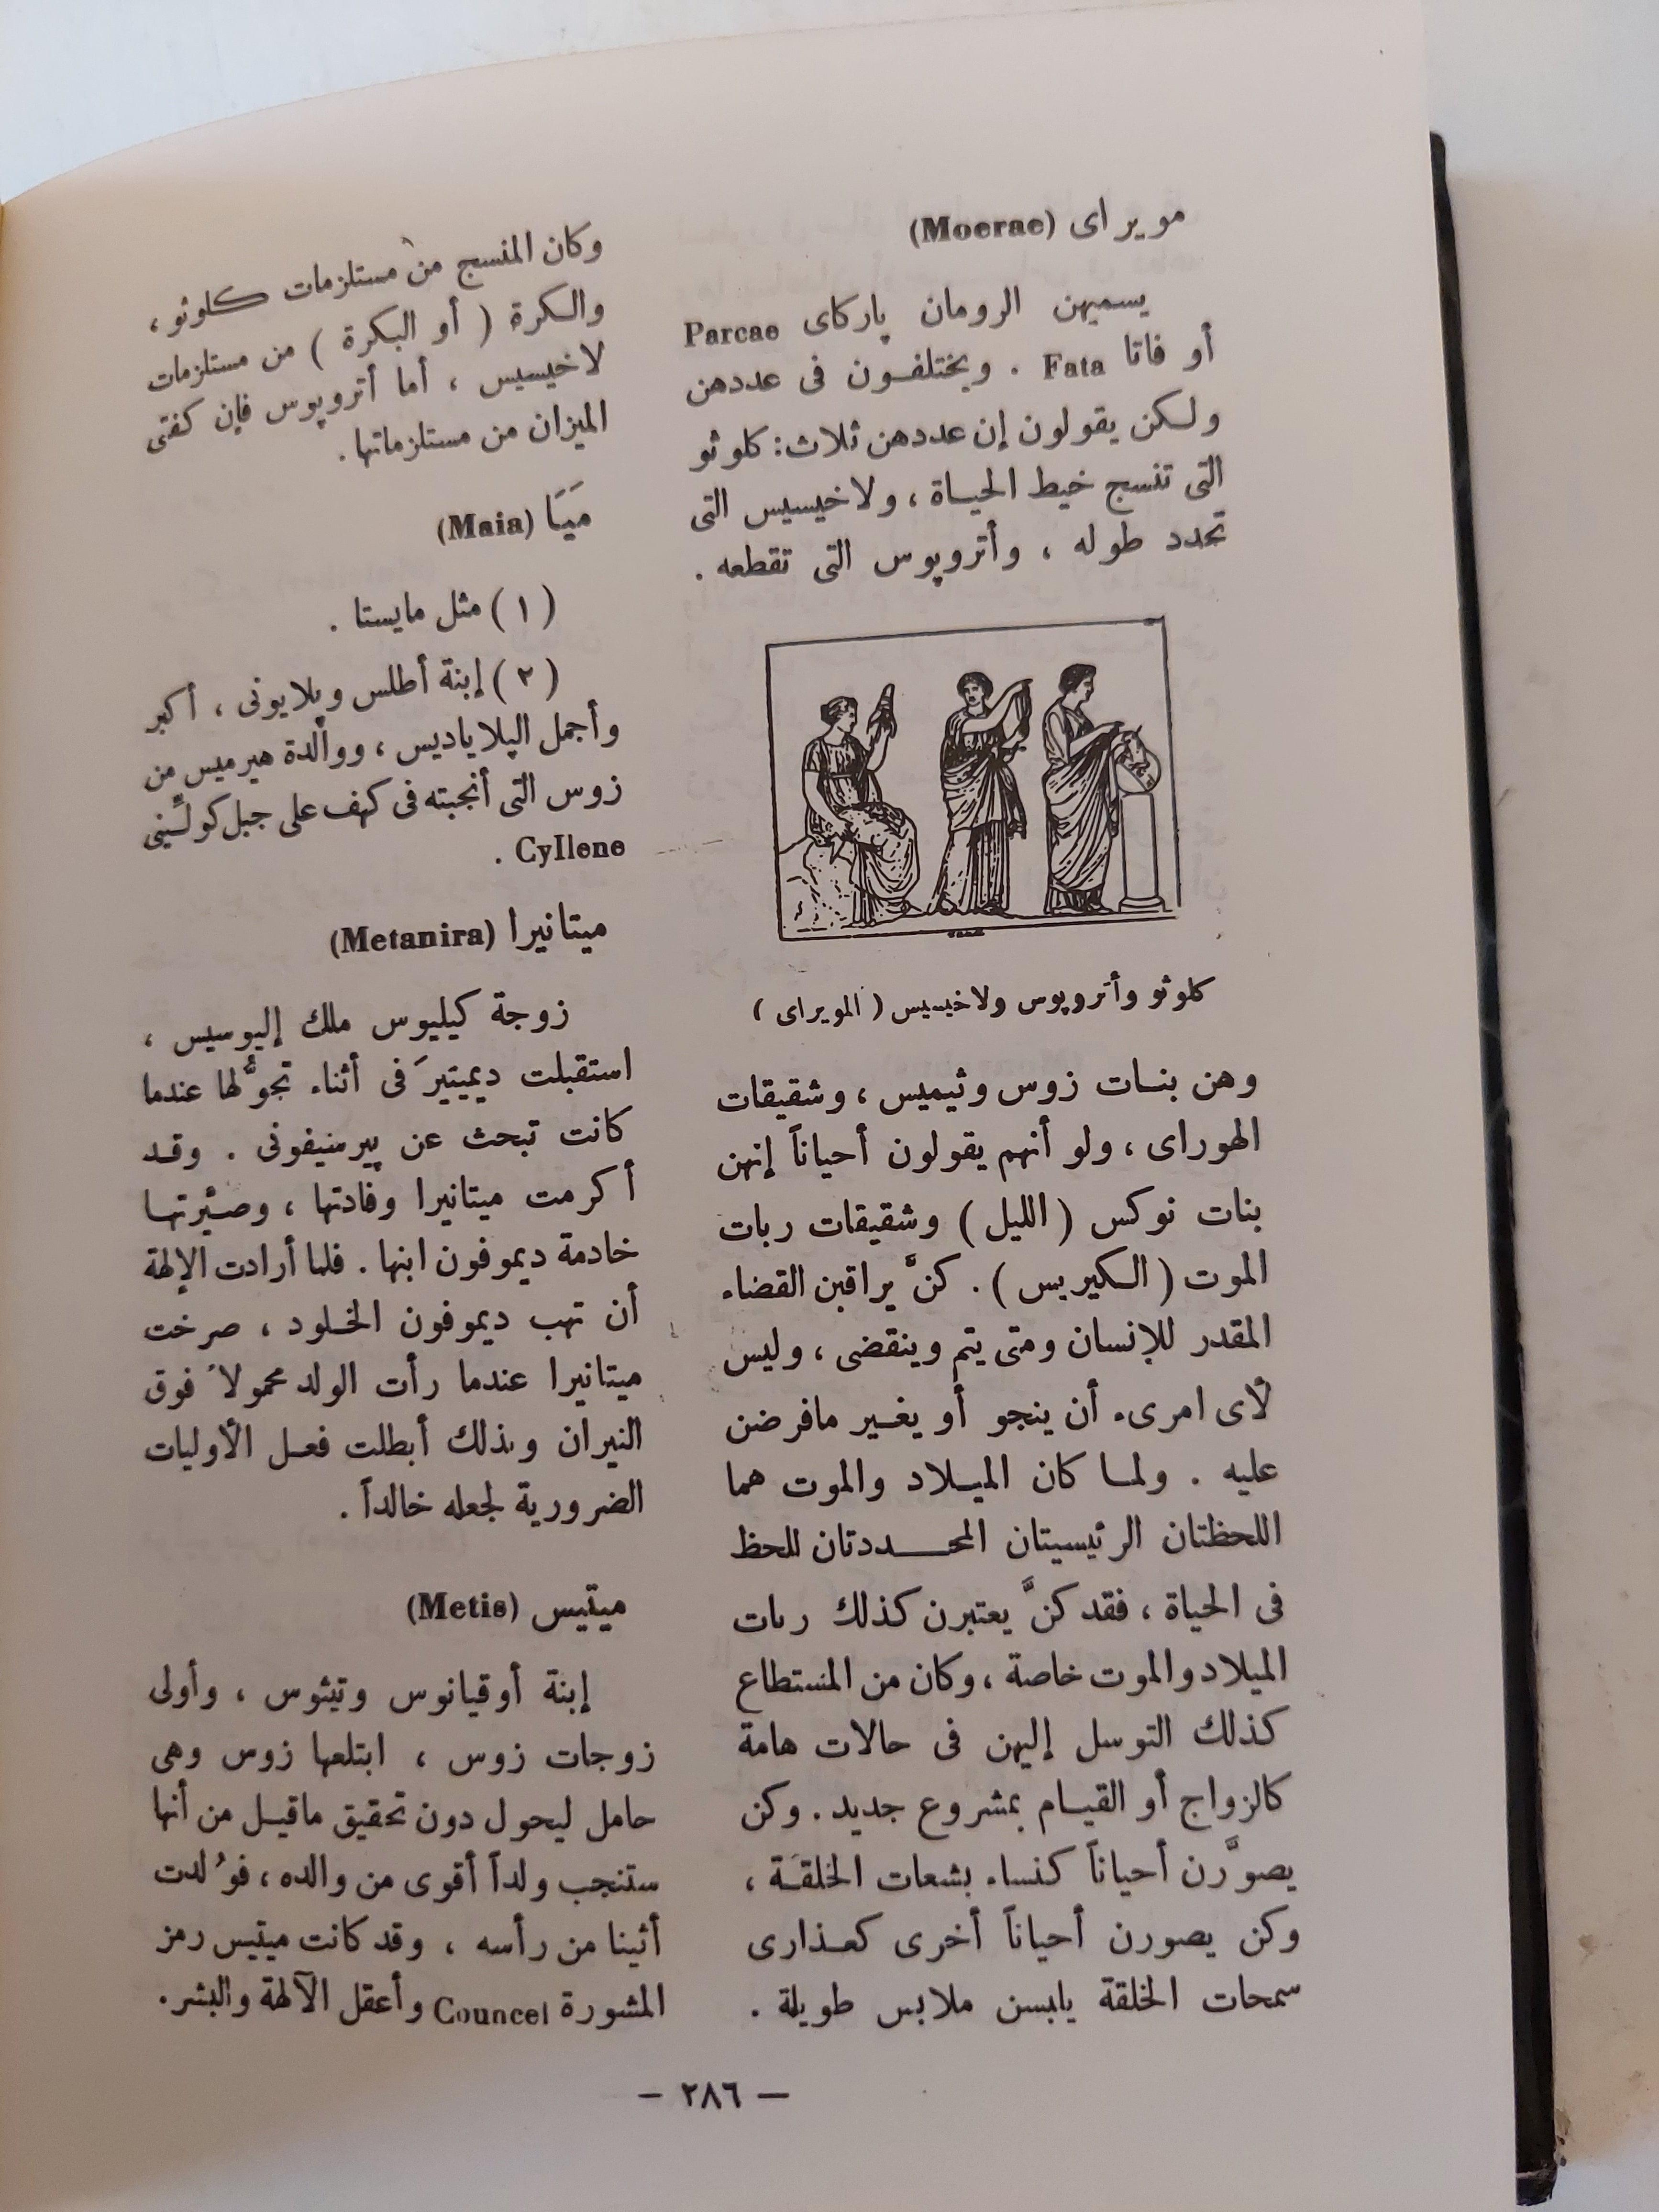 مويراى (Moerae)
يسميهن الرومان پاركاى Parcae
أو فاتا Fata . ويختلفون فى عددهن
ولكن يقولون إن عددهن ثلاث : كلوثو
التى تنسج خيط الحياة ، ولاخيسيس التى
تحدد طوله ، وأتروپوس التى تقطعه .
كلوثو وأتروپوس ولاخيسيس ( المويراى )
وهن بنات زوس وثيميس ، وشقيقات
الهوراى ، ولو أنهم يقولون أحياناً إنهن
بنات نوكس ( الليل ) وشقيقات ربات
الموت ( الكيريس ) . كنَّ يراقبن القضاء
المقدر للإنسان ومتى يتم وينقضى ، وليس
لأى امرىء أن ينجو أو يغير مافرضن
عليه . ولما كان الميلاد والموت هما
اللحظتان الرئيسيتان المحددتان للحظ
فى الحياة ، فقد كنَّ يعتبرن كذلك ربات
الميلاد والموت خاصة ، وكان من المستطاع
كذلك التوسل إليهن فى حالات هامة
كالزواج أو القيام بمشروع جديد . وكن
يصوَّرن أحياناً كنساء بشعات الخلقة ،
وكن يصورن أحياناً أخرى كعذارى
سمحات الخلقة يلبسن ملابس طويلة .
وكان المنسج من مستلزمات كلوثو ،
والكرة ( أو البكرة ) من مستلزمات
لاخيسيس ، أما أتروپوس فإن كفتى
الميزان من مستلزماتها .
مَيَا (Maia)
( ١ ) مثل مايستا .
( ٢ ) إبنة أطلس وپلايونى ، أكبر
وأجمل الپلاياديس ، ووالدة هيرميس من
زوس التى أنجبته فى كهف على جبل كولِّينى
Cyllene .
ميتانيرا (Metanira)
زوجة كيليوس ملك إليوسيس ،
استقبلت ديميتيرَ فى أثناء تجوُّلها عندما
كانت تبحث عن پيرسيفونى . وقد
أكرمت ميتانيرا وفادتها ، وصيَّرتها
خادمة ديموفون ابنها . فلما أرادت الإلهة
أن تهب ديموفون الخلود ، صرخت
ميتانيرا عندما رأت الولد محمولاً فوق
النيران وبذلك أبطلت فعل الأوليات
الضرورية لجعله خالداً .
ميتيس (Metis)
إبنة أوقيانوس وتيثوس ، وأولى
زوجات زوس ، ابتلعها زوس وهى
حامل ليحول دون تحقيق ماقيل من أنها
ستنجب ولداً أقوى من والده ، فوُلدت
أثينا من رأسه ، وقد كانت ميتيس رمز
المشورة Councel وأعقل الآلهة والبشر .
— ٢٨٦ —